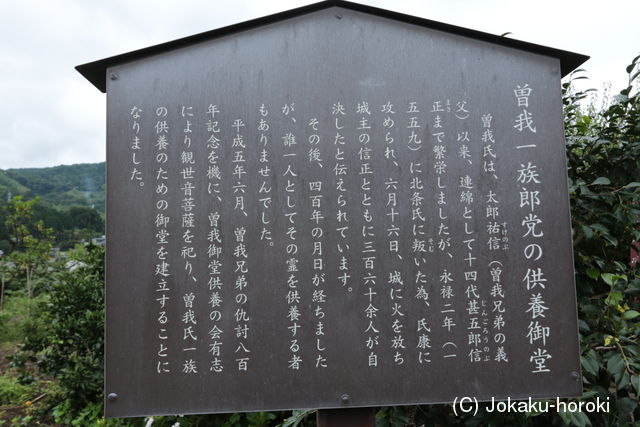 曽我一族郎党の供養御堂
曽我氏は、太郎祐信（曽我兄弟の義
すけのぶ
父）以来、連綿として十四代甚五郎信
じんごろうのぶ
正まで繁栄しましたが、永禄二年（一
まさ
五五九）に北条氏に叛いた為、氏康に
そむ
攻められ、六月十六日、城に火を放ち
城主の信正とともに三百六十余人が自
決したと伝えられています。
その後、四百年の月日が経ちました
が、誰一人としてその霊を供養する者
もありませんでした。
平成五年六月、曽我兄弟の仇討八百
年記念を機に、曽我御堂供養の会有志
により観世音菩薩を祀り、曽我氏一族
の供養のための御堂を建立することに
なりました。
(C) Jokaku-horoki